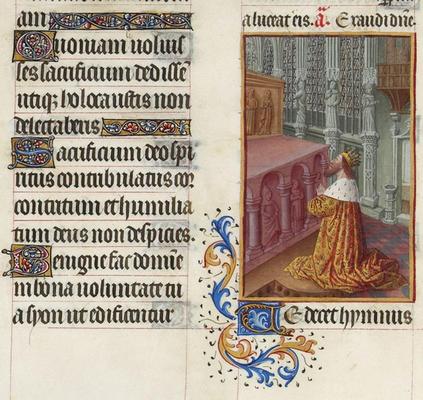 am
Quoniam uoluis
ses sacrificium dedissē
utiq; holocaustis non
delectaberis
Sacrificium deo spi
ritus contribulatus cor
contritum et humilia
tum deus non despicies.
Benigne fac domine
in bona uoluntate tu
a syon ut edificentur
a luceat eis. a. Exaudi dn̄e.
Te decet hymnus